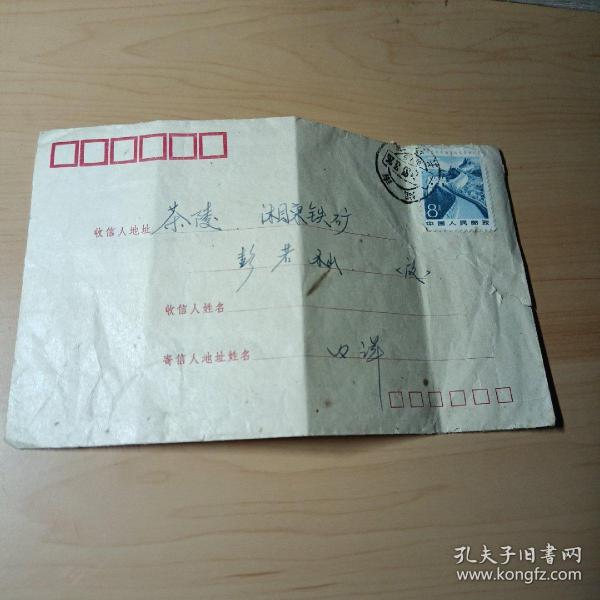 8分
中国人民邮政
收信人地址 茶陵 湘东铁矿
彭若 (收)
收信人姓名
寄信人地址姓名 内详
孔夫子旧书网
www.kongfz.com